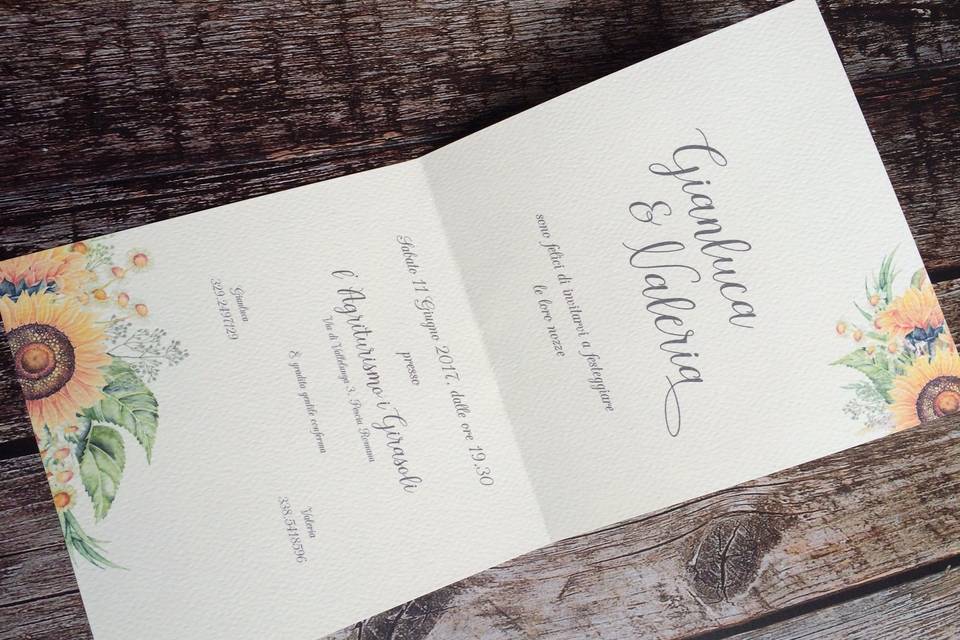 Gianluca
& Valeria
sono felici di invitarvi a festeggiare
le loro nozze
Sabato 11 Giugno 2017, dalle ore 19,30
presso
l'Agriturismo i Girasoli
Via di Vallelunga 3,
È gradita gentile conferma
Gianluca
329.2497129
Valeria
338.5418596